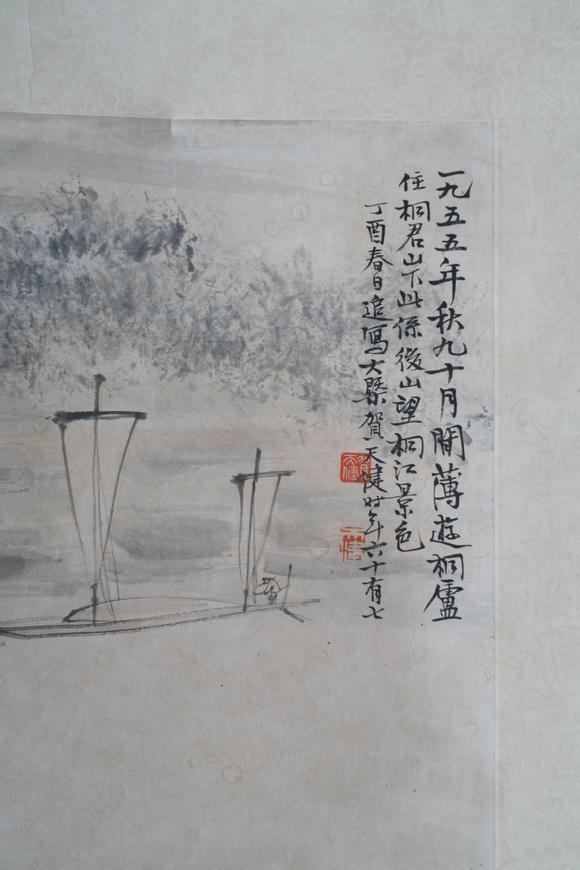 一九五五年秋九十月間薄遊桐廬
住桐君山下此係後山望桐江景色
丁酉春日追寫大槩賀天健时年六十有七